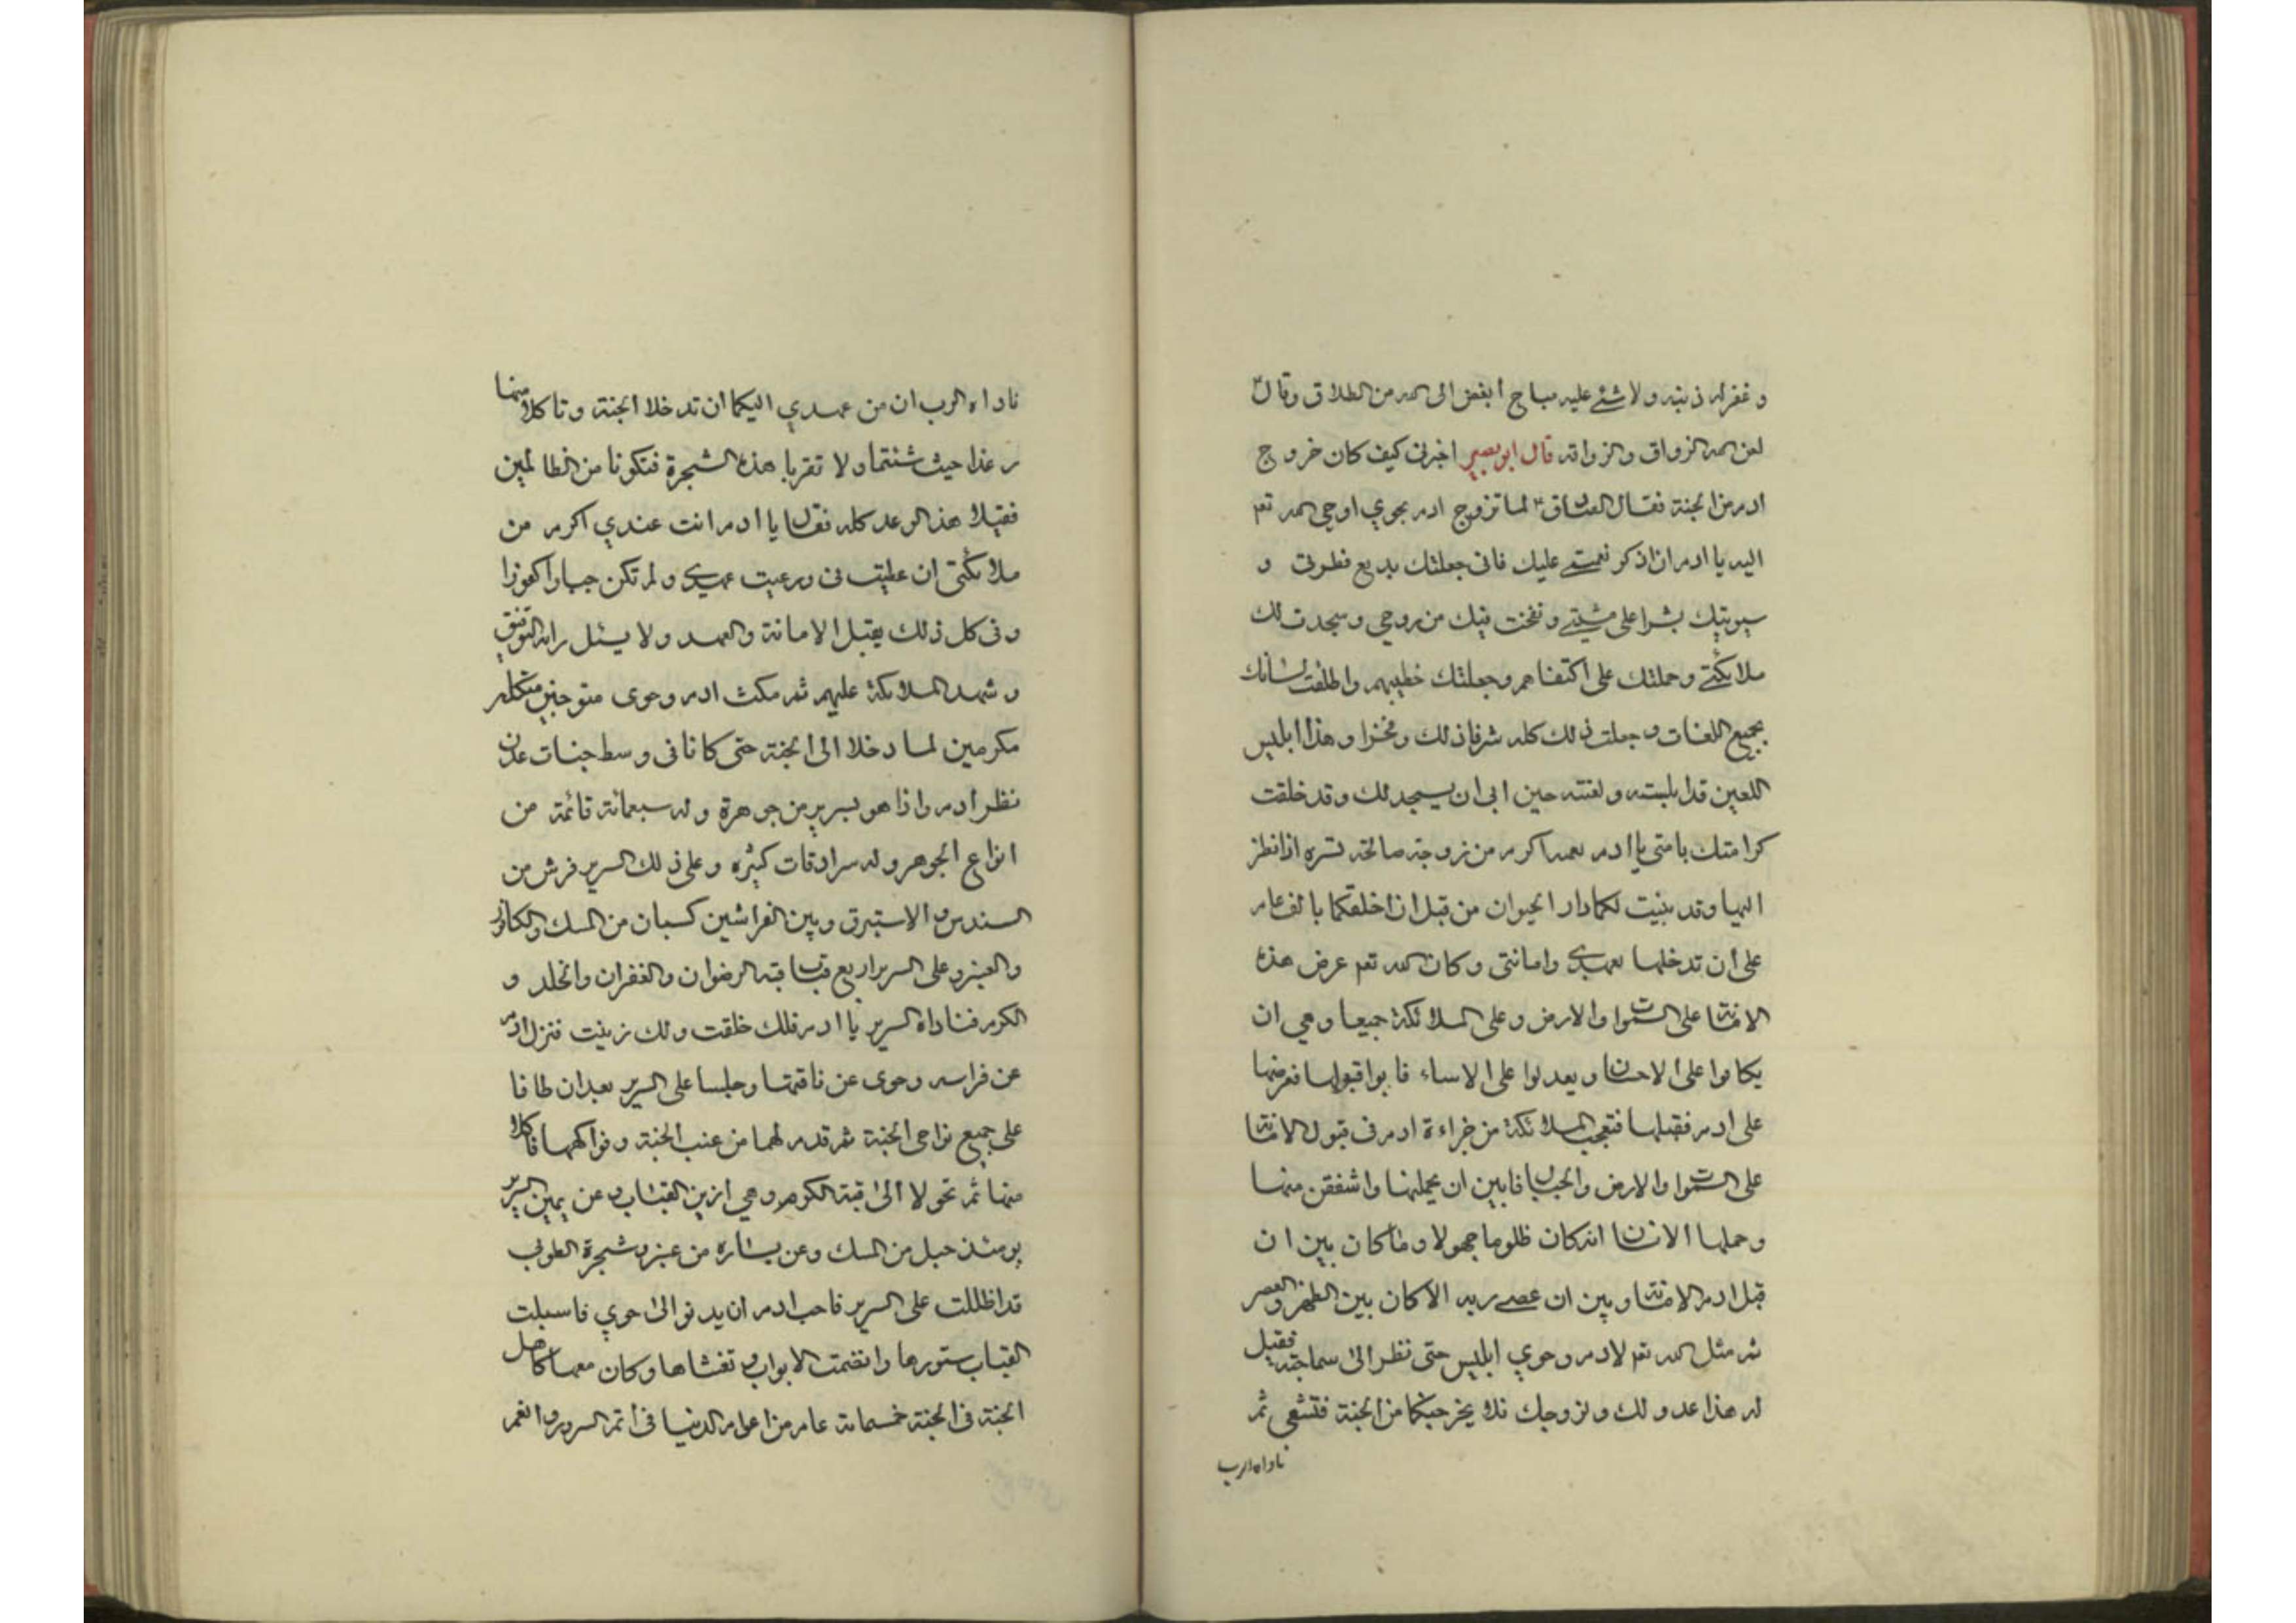 و غفر له ذنبه ولا شئ عليه مباح أبغض الى الله من الطلاق وقال ؑ
لعن الله الذواق والذواقه قال ابو بصير اخبرنى كيف كان خروج
ادم من الجنة فقال الصادق ؑ لما تزوج ادم بحوي اوحى الله تعم
اليه يا ادم ان اذكر نعمتے عليك فانى جعلتك بديع فطرتى و
سويتك بشرا على مشيتے و نفخت فيك من روحي و سجدت لك
ملائكتے و حملتك على اكتفاهم وجعلتك خطيبهم واطلقت لسانك
بجميع اللغات و جعلت ذلك كله شرفا لك و فخرا و هذا ابليس
اللعين قد ابلسته و لعنته حين ابى ان يسجد لك و قد خلقت
كرامتك بامتى يا ادم نعمه اكرم من زوجة صالحة تسره اذا نظر
اليها وقد بنيت لكما دار الحيوان من قبل ان اخلقكما بالف عام
على أن تدخلها بعهدے وامانتى و كان الله تعم عرض هذه
الامانة على السموات والارض و على الملائكة جميعا و هي ان
يكافوا على الاحسان و يعدلوا على الاساء فابوا قبولها فعرضها
على ادم فقبلها فتعجب الملائكة من جراءة ادم فى قبول الامانة
على السموات والارض والجبال فابين ان يحملنها واشفقن منها
وحملها الانسان انه كان ظلوما جهولا و ما كان بين ان
قبل ادم الامانة و بين ان عصے ربه الا كان بين الظهر والعصر
ثم مثل الله تعم لادم و حوي ابليس حتى نظر الى سماجته فقيل
له هذا عدو لك و لزوجك فلا يخرجنكما من الجنة فتشقى ثم
ناداه الرب
ناداه الرب ان من عهدي اليكما ان تدخلا الجنة و تاكلا منها
رغدا حيث شئتما و لا تقربا هذه الشجرة فتكونا من الظالمين
فقبلا هذا العهد كله فقال يا ادم انت عندي اكرم من
ملائكتى ان و رعيت عهدے و لم تكن جبارا كفورا
و فى كل ذلك يقبل الامانة والعهد ولا يسئل ربه التوفيق
و شهد الملائكة عليهم ثم مكث ادم و حوى متوجين متكللين
مكرمين لما دخلا الى الجنة حتى كانا فى وسط جنات عدن
نظر ادم واذا هو بسرير من جوهرة وله سبعمائة قائمة من
انواع الجوهر و له سرادقات كثيره و على ذلك السرير فرش من
السندس و الاستبرق و بين الفراشين كسبان من المسك والكافور
والعنبر و على السرير اربع قباب قبه الرضوان والغفران والخلد و
الكرم فناداه السرير يا ادم فلك خلقت ولك زينت فنزل ادم
عن فراسه و حوى عن ناقتها و جلسا على السرير بعد ان طافا
على جميع نواحى الجنة ثم قدم لهما من عنب الجنة و فواكهها فاكلا
منها ثم تحولا الى قبة الكرم و هي ازين القباب و عن يمين السرير
يومئذ جبل من المسك وعن يساره من عنبر و شجرة الطوبى
قد اظللت على السرير فاحب ادم ان يدنو الى حوي فاسبلت
القباب ستورها وانضمت الابواب و تغشاها و كان معها كاهل
الجنة فى الجنة خمسمائة عام من اعوام الدنيا فى اتم السرور و انعم